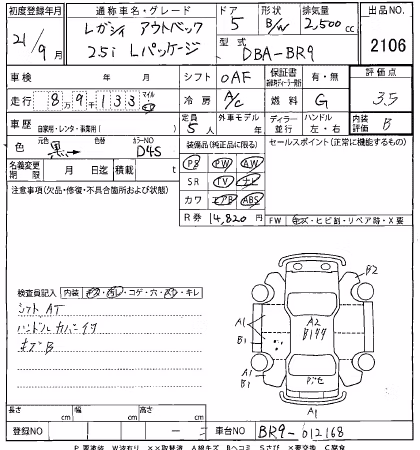 初度登録年月 通称車名・グレード ドア 形状 排気量 出品NO.
21年9月 レガシィ アウトバック 5 B/W 2,500cc 2106
2.5i Lパッケージ 型式 DBA-BR9
車検 年 月 シフト OAF 保証書 有・無 評価点
走行 8万9千133 マイル 冷房 A/C 燃料 G 3.5
車歴 自家用・レンタ・事業用( ) 定員 5人 外車モデル 年 ディーラー 並行 ハンドル 左・右 内装評価 B
色 元色 黒→ 色替 カラーNO D4S 装備品(純正品に限る) セールスポイント(正常に機能するもの)
名義変更期限 月 日迄 積載 t PS PW AW
注意事項(欠品・修復・不具合箇所および状態) SR TV ナビ
カワ エアB ABS
R券 14,820円 FW キズ・ヒビ割・リペア跡・X要
B2
検査員記入 内装 キズ・汚レ・コゲ・穴・スリ・キレ
シフトAT A1 A2 A1
ハンドルカバーイタ B1 B144 B1
キズB
A1
長さ cm 幅 cm 高さ cm
登録NO 車台NO BR9-012168
P 要塗装 W波有り ××取替済 A線キズ Bヘコミ Sさび ×要交換 C腐食